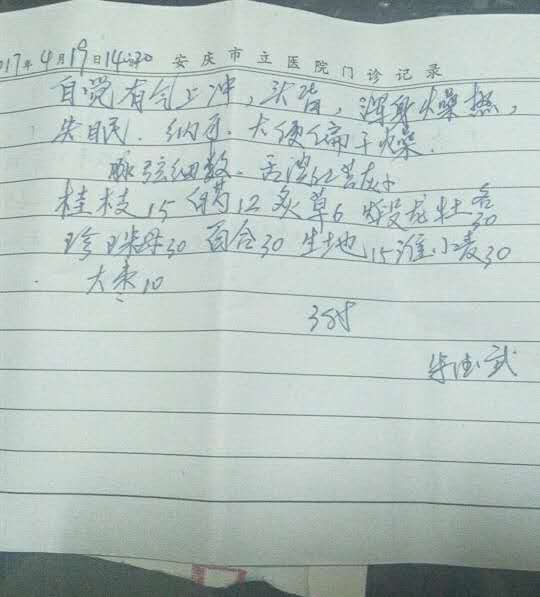 017年4月19日14:20 安庆市立医院门诊记录
自觉有气上冲，头昏，浑身燥热，
失眠．纳可．大便偏干燥．
脉弦细数．舌淡红苔
桂枝15 白芍12 炙草6 煅龙牡各30
珍珠母30 百合30 生地15 淮小麦30
大枣10
3付